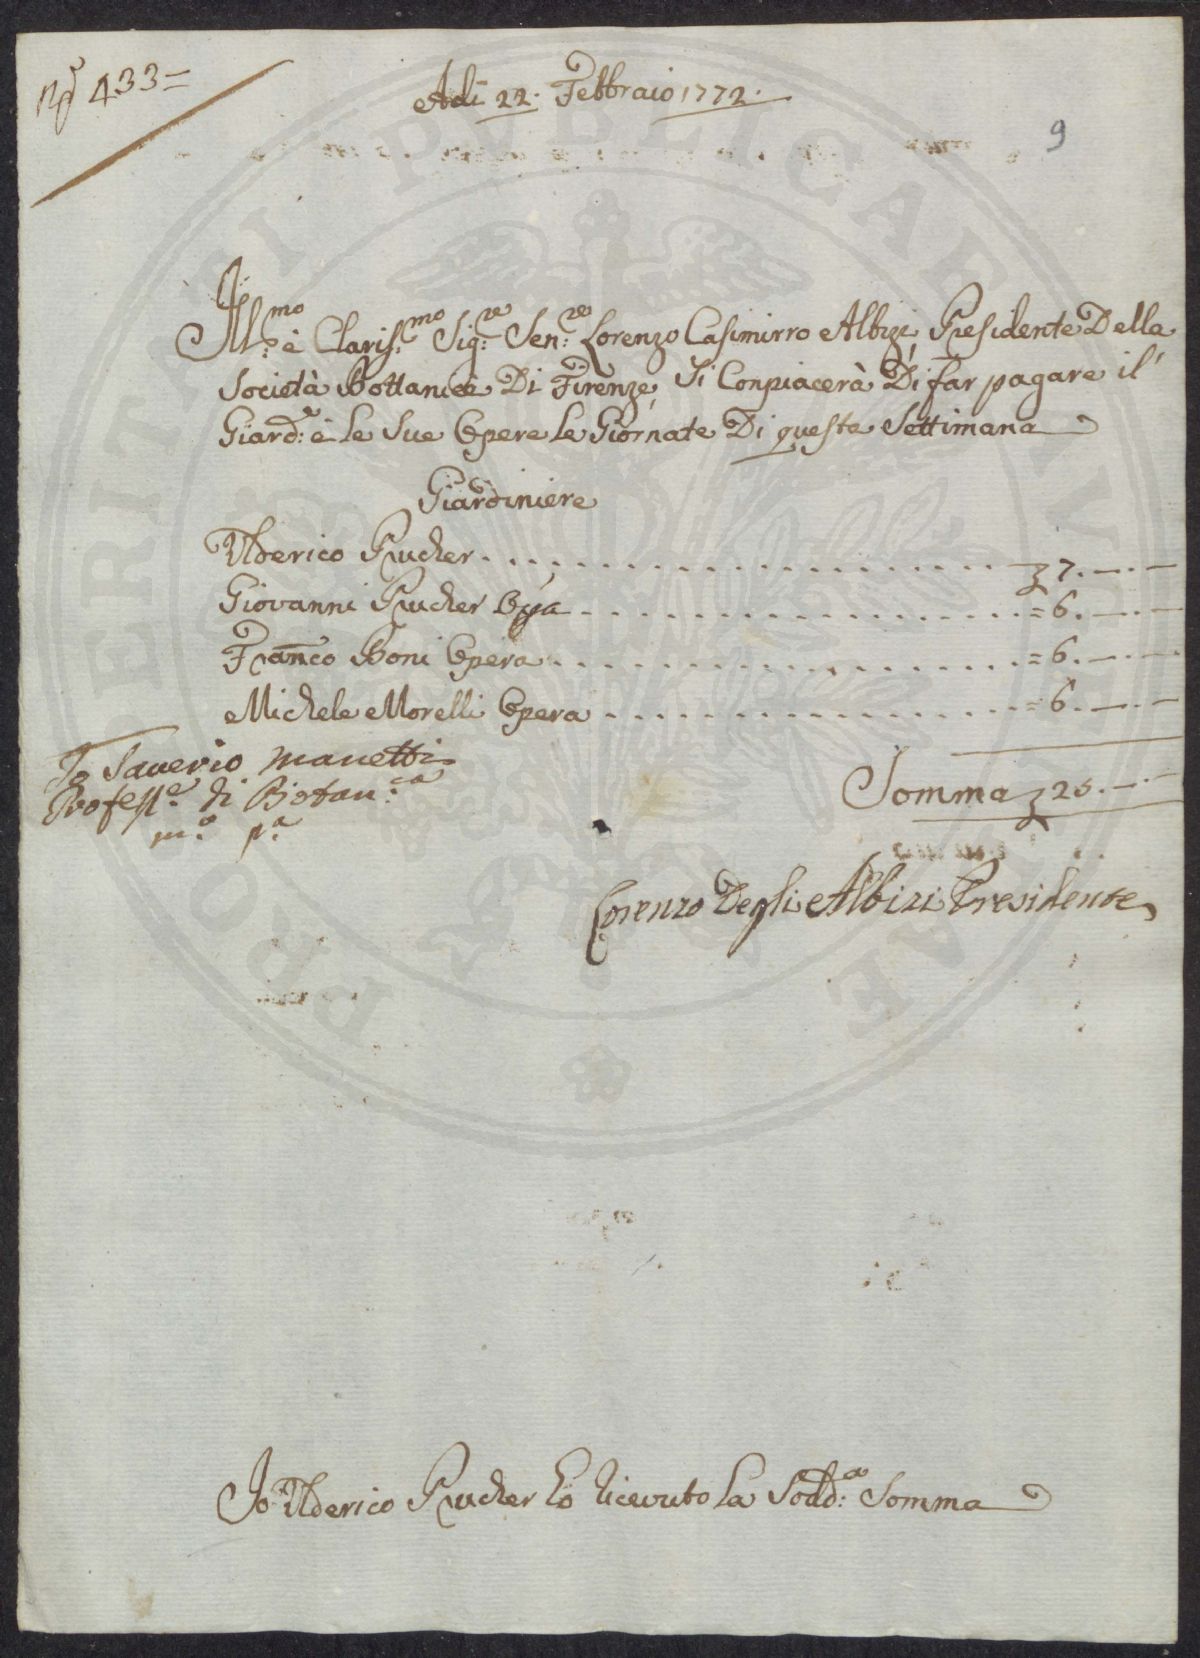 N.º 433=
Adi 22. Febbraio 1772.
9
Ill:mo è Claris:mo Sig:re Sen:re Lorenzo Casimirro Albizi Presidente Della
Società Bottanica Di Firenze, Si Conpiacerà Di far pagare il
Giard:e è Le Sue Opere Le Giornate Di questa Settimana
Giardiniere
Ulderico Prucher . . . . . . . . . . . . . . . . . . . . . . 7.—.—
Giovanni Prucher Opa . . . . . . . . . . . . . . . . . . = 6.—.—
Franco Boni Opera . . . . . . . . . . . . . . . . . . . . = 6.—.—
Michele Morelli Opera . . . . . . . . . . . . . . . . . = 6.—.—
Io Saverio Manetti
Profess.e di Botan:ca
m.o p.a
Somma 25.—.—
Lorenzo Degli Albizi Presidente
Io Ulderico Prucher ho ricevuto La Sodd:a Somma
PERITATI PVBLICAE